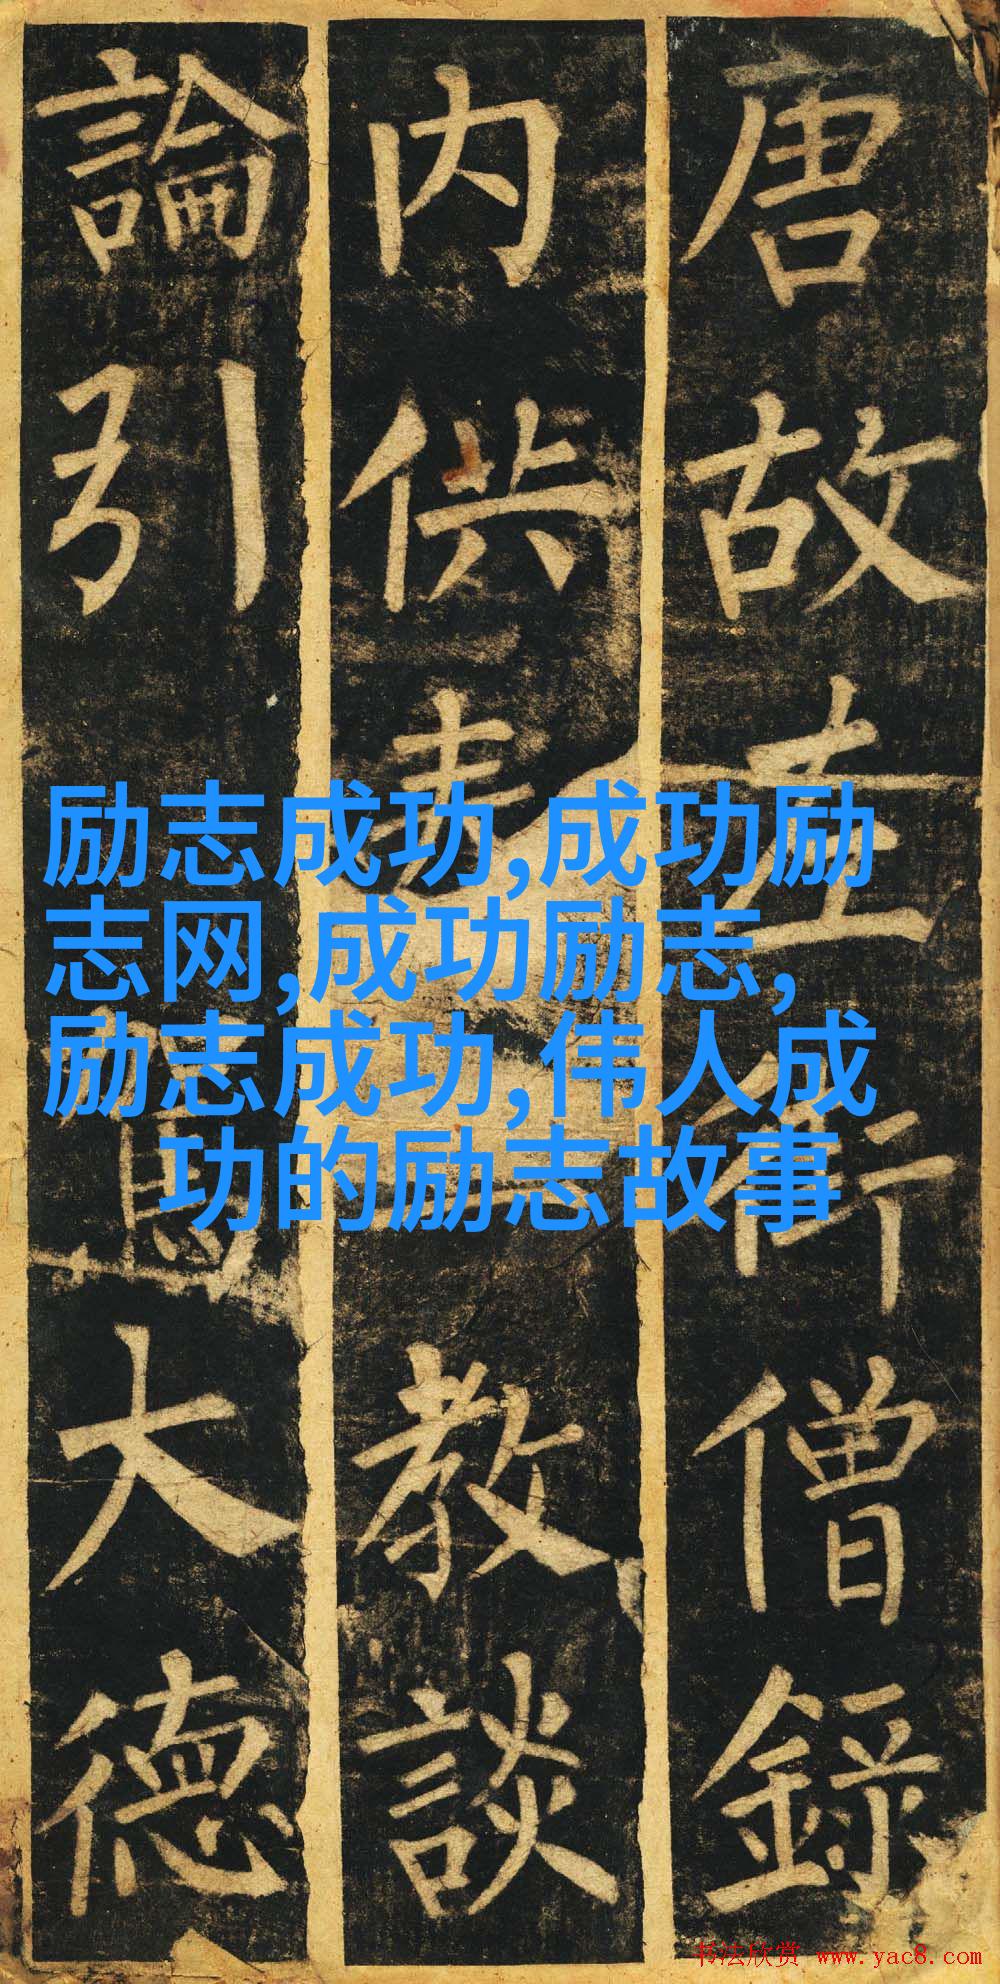 唐故左街僧錄
内供奉教談
論引駕大德
励志成功,成功励
志网,成功励志,
励志成功,伟人成
功的励志故事
书法欣赏 www.yac8.com